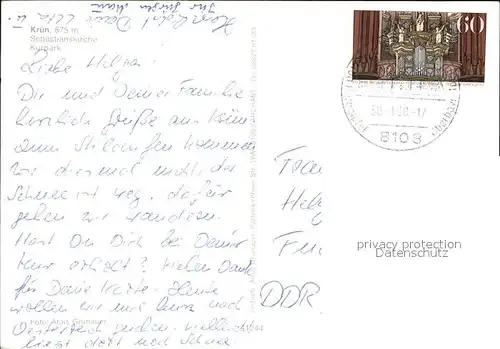 Herzlichst Deine Uta u.
Krün, 875 m
Sebastianskirche
Kurpark
60
8108
Liebe Helga!
Dir und Deiner Familie
herzliche Grüße aus Krün
zum Skilaufen kommen
wir diesmal nicht, der
Schnee ist weg, dafür
gehen wir wandern.
Hast Du Dich bei Deiner
Kur erholt? Vielen Dank
für Deine Karte. Heute
wollen wir mal kurz nach
Österreich gucken, vielleicht
liegt dort noch Schnee.
Foto: Alois Grunauer
Frau
Hel
Fu
DDR
privacy protection
Datenschutz